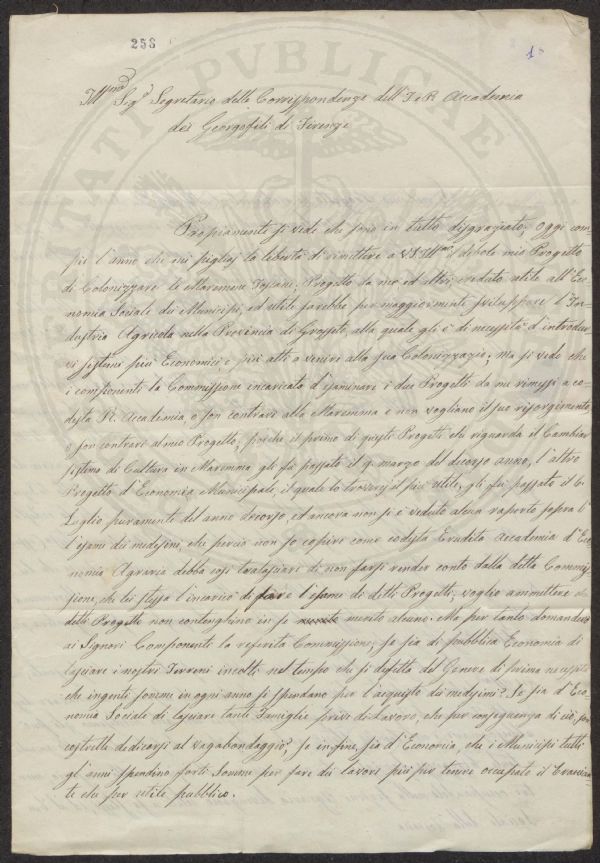 258
1
Ill.mo Sig.r Segretario delle Corrispondenze dell'I. e R. Accademia
dei Georgofili di Firenze
Propriamente si vede che sono in tutto disgraziato, Oggi com-
pie l'anno che mi pigliaj la libertà di rimettere a V.S. Ill.ma debole mio Progetto
di Colonizzare le Maremme Toscane, Progetto da me ed altri creduto utile all'Eco-
nomia Sociale dei Municipi, ed utile sarebbe per maggiormente sviluppare l'In-
dustria Agricola nella Provincia di Grosseto, alla quale gli è di necessità d'introdur-
vi sistemi più Economici e più atti a venire alla sua Colonizzazio; ma si vede che
i componenti la Commissione incaricata d'esaminare i due Progetti da me rimessi a co-
desta R. Accademia, o son contrari alla Maremma e non vogliano il suo risorgimento,
o son contrari al mio Progetto, poiche il primo di questi Progetti che riguarda il Cambiar
sistema di Cultura in Maremma gli fù passato il 9. marzo del decorso anno, l'altro
Progetto d'Economia Municipale, il quale lo troverej il più utile, gli fù passato il 6
Luglio puramente del anno decorso, ed ancora non si è veduto alcun raporto sopra l'
l'esame dei medesimi, che perciò non so capire come codesta Erudita Accademia d'Eco-
nomia Agraria debba così tralasciare di non farsi render conto dalla detta Commis-
sione, che lei stessa l'incaricò di fare l'esame di detti Progetti, voglio ammettere che
detti Progetti non contenghino in se merito alcuno. Ma per tanto domanderei
ai Signori Componenti la referita Commissione; se sia di pubblica Economia di
lasciare i nostri Terreni incolti nel tempo che si difetta del Genere di prima necessità
che ingenti somme in ogni anno si spendano per l'acquisto dei medesimi? Se sia d'Eco-
nomia Sociale di lasciare tante Famiglie prive di Lavoro, che per conseguenza di ciò, son
costrette dedicarsi al vagabondaggio? Se in fine, sia d'Economia, che i Municipi tutti
gl'anni spendino forti Somme per fare dei lavori più per tenere occupato il Braccian-
te che per utile pubblico.